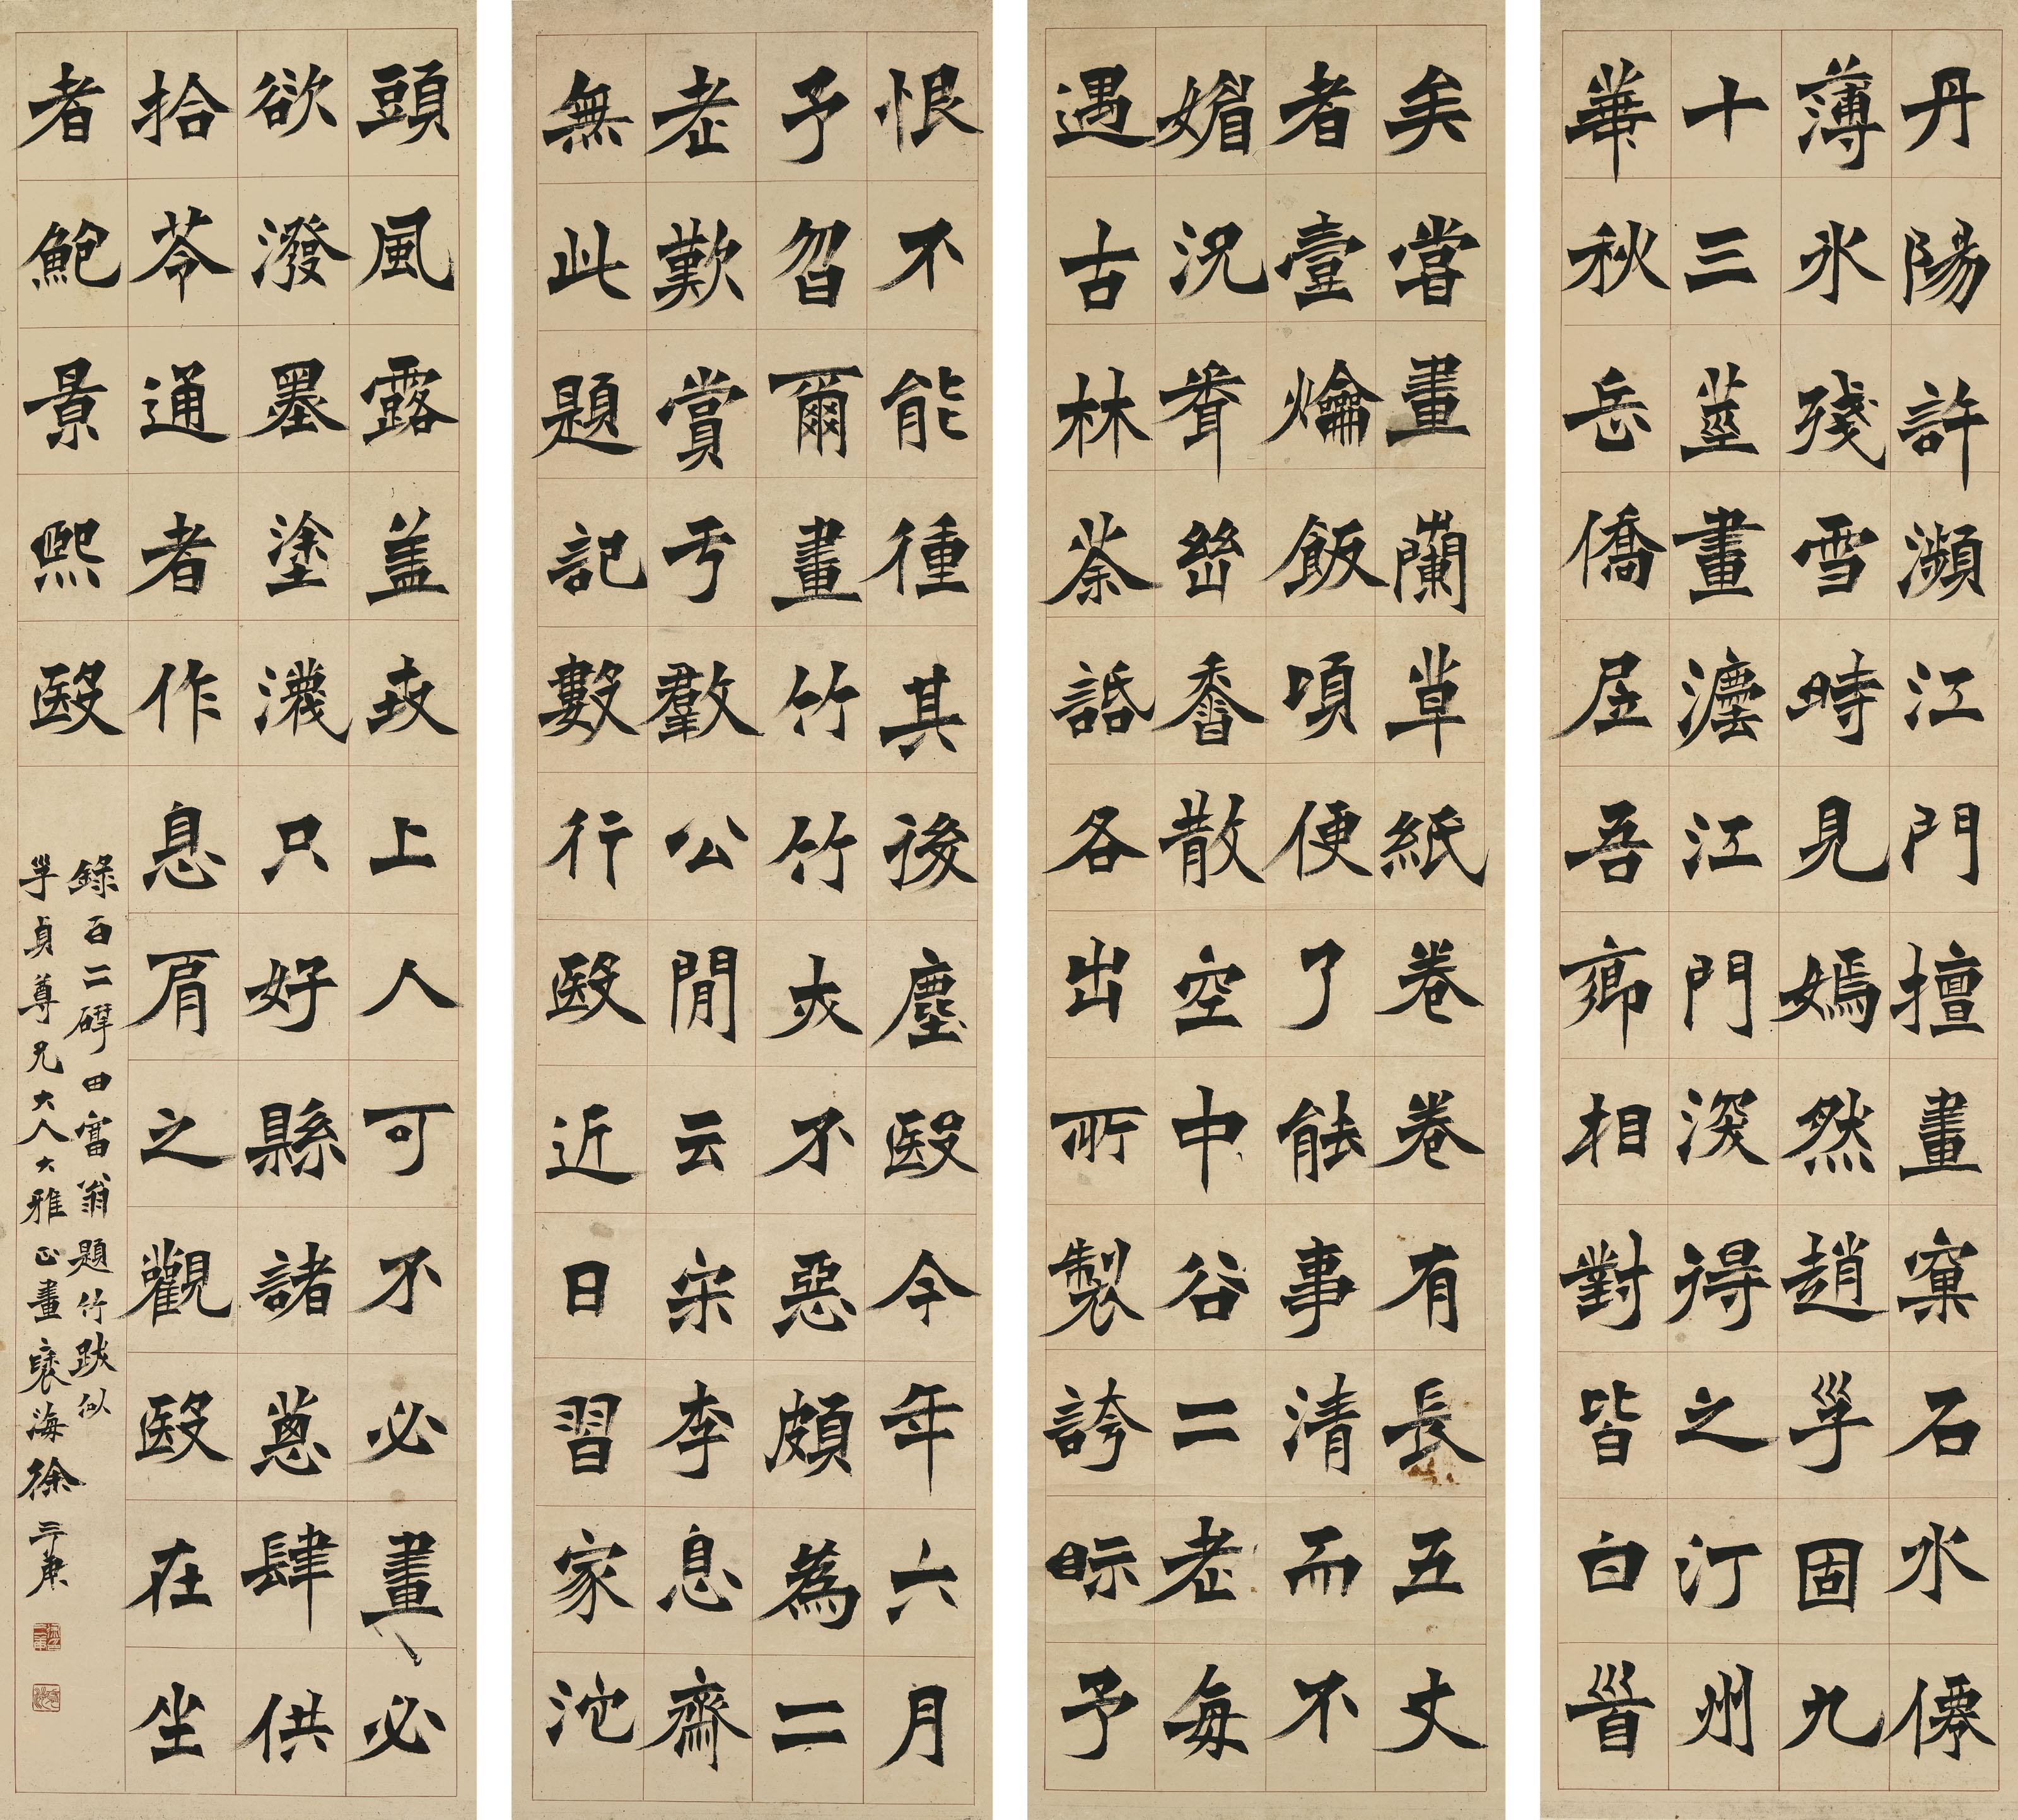 丹陽許瀕江門擅畫窠石水僊
薄氷殘雪時見嫣然趙孚固九
十三莖畫瀍江門深得之汀州
華秋岳僑居吾鄉相對皆白首
矣嘗畫蘭草紙卷卷有長五丈
者壹爚飯頃便了能事清而不
媚況聳㟭香散空中谷二老每
遇古林茶話各出所製誇眎予
恨不能種其後塵醫今年六月
予曶爾畫竹竹亦不惡頗為二
老歎賞亏羣公閒云宋李息齋
無此題記數行醫近日習家沱
頭風露蓋叐上人可不必畫必
欲潑墨塗濺只好縣諸蔥肆供
拾苓通者作息肩之觀醫在坐
者鮑景熙醫
錄百二硯田富翁題竹跋似
孚貞尊兄大人大雅正畫褎海徐三庚